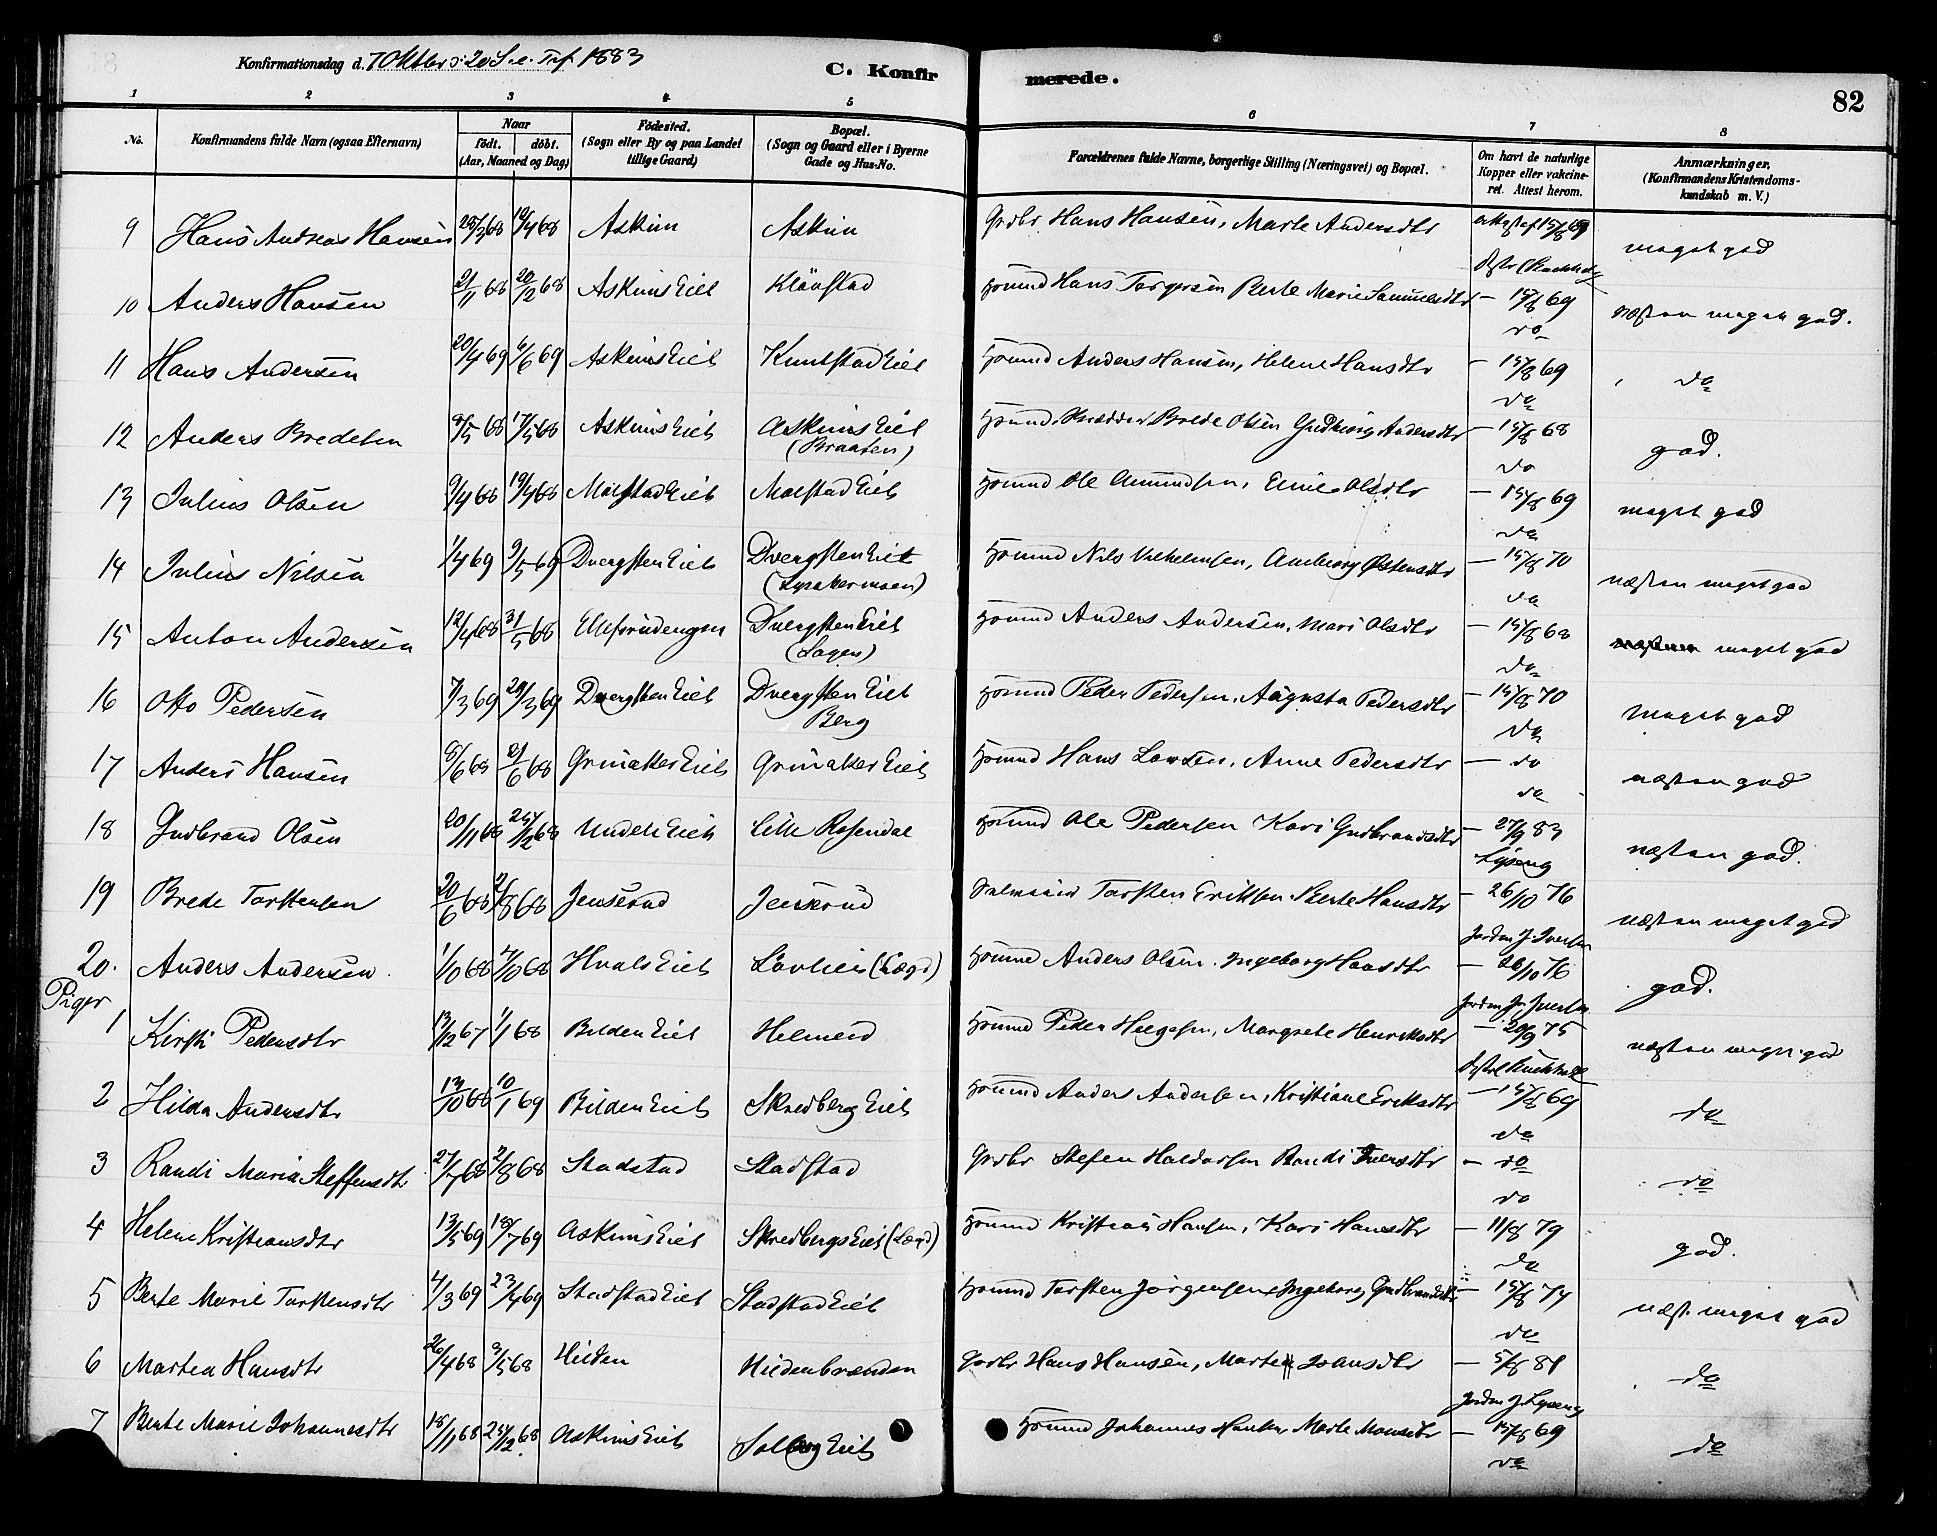 Konfirmationsdag d. 7 Oktbr 1883
C. Konfirmerede.
82
1 2 3 4 5 6 7 8
No. Konfirmandens fulde Navn (ogsaa Efternavn) Naar födt. döbt. (Aar, Maaned og Dag) Födested. (Sogn eller By og paa Landet tillige Gaard) Bopæl. (Sogn og Gaard eller i Byerne Gade og Hus-No. Forældrenes fulde Navne, borgerlige Stilling (Næringsvei) og Bopæl. Om havt de naturlige Kopper eller vakcineret. Attest herom. Anmærkninger. (Konfirmandens Kristendomskundskab m. V.)
9 Hans Andreas Hansen 19/4 68 Askim Askim Grdbr Hans Hansen, Marte Andersdtr 15/8 69 meget god
10 Anders Hansen 2/11 68 20/12 68 Askims Eiet Klövstad Hans Torgersen Berte Marie Samuelsdtr 15/8 69 næsten meget god.
do
11 Hans Andersen 20/4 69 6/6 69 Askims Eiet Knutstad Eiet Anders Hansen, Helene Hansdtr 15/8 69 do
do
12 Anders Bredesen 17/5 68 Askims Eiet Askims Eiet (Braaten) Brede Olsen Gudbiörg Andersdtr 15/8 68 god.
do
13 Julius Olsen 9/4 68 19/4 68 Molstad Eiet Molstad Eiet Ole Amundsen, Olsdtr 15/8 69 meget god
do
14 Julius Nilsen 1/4 69 9/5 69 Dvergsten Eiet Dvergsten Eiet (Lysakermoen) Nils Vilhelmsen, Østensdtr 15/8 70 næsten meget god
do
15 Anton Andersen 12/4 68 31/5 68 Dvergsten Eiet Anders Andersen, Mari Olsdtr 15/8 68 meget god
do
16 Otto Pedersen 7/3 69 28/3 69 Dvergsten Eiet Dvergsten Eiet Berg Peder Pedersen, Augusta Pedersdtr 15/8 70 meget god
do
17 Anders Hansen 8/6 68 21/6 68 Grinaker Eiet Grinaker Eiet Hans Larsen, Anne Pedersdtr do næsten god
do
18 Gudbrand Olsen 20/11 68 Eiet Lille Rosendal Ole Pedersen Kari Gudbrandsdtr 27/9 83 næsten god.
Lyseng
19 Brede Torstensen 20/6 68 2/8 68 Jenserud Jenserud Torsten Eriksen, Berte Hansdtr 26/10 76 næsten meget god
20. Anders Andersen 1/10 68 Hvals Eiet Lövlien (Lægd) Anders Olsen, Ingeborg Hansdtr 26/10 76 god.
Piger
1 Kirsti Pedersdtr 13/12 67 1/1 68 Bilden Eiet Helmeid Peder Helgesen, Margrete Henriksdtr 20/9 75 næsten meget god
2 Hilda Andersdtr 13/10 68 10/1 69 Bilden Eiet Skredberg Eiet Anders Andersen, Kristiane Eriksdtr 15/8 69 do
do
3 Randi Maria Steffensdtr 27/7 68 2/8 68 Stadstad Stadstad Grdbr Stefen Haldorsen Randi Iversdtr do do
do
4 Helene Kristiansdtr 13/5 69 18/7 69 Askims Eiet Skredbergs Eiet (Lægd) Kristian Hansen, Kari Hansdtr 11/8 79 god.
do
5 Berte Marie Torstensdtr 4/3 69 23/4 69 Stadstad Eiet Stadstad Eiet Torsten Jörgensen, Ingeborg Gudbrandsdtr 15/8 77 næst. meget god
do
6 Martea Hansdtr 26/4 68 3/5 68 Hilden Hildenbrænden Grdbr Hans Hansen, Marte 5/8 81 do
7 Berte Marie Johannesdtr 18/11 68 25/12 68 Askims Eiet Solberg Eiet Johannes Hansen Marte 15/8 69 do
do